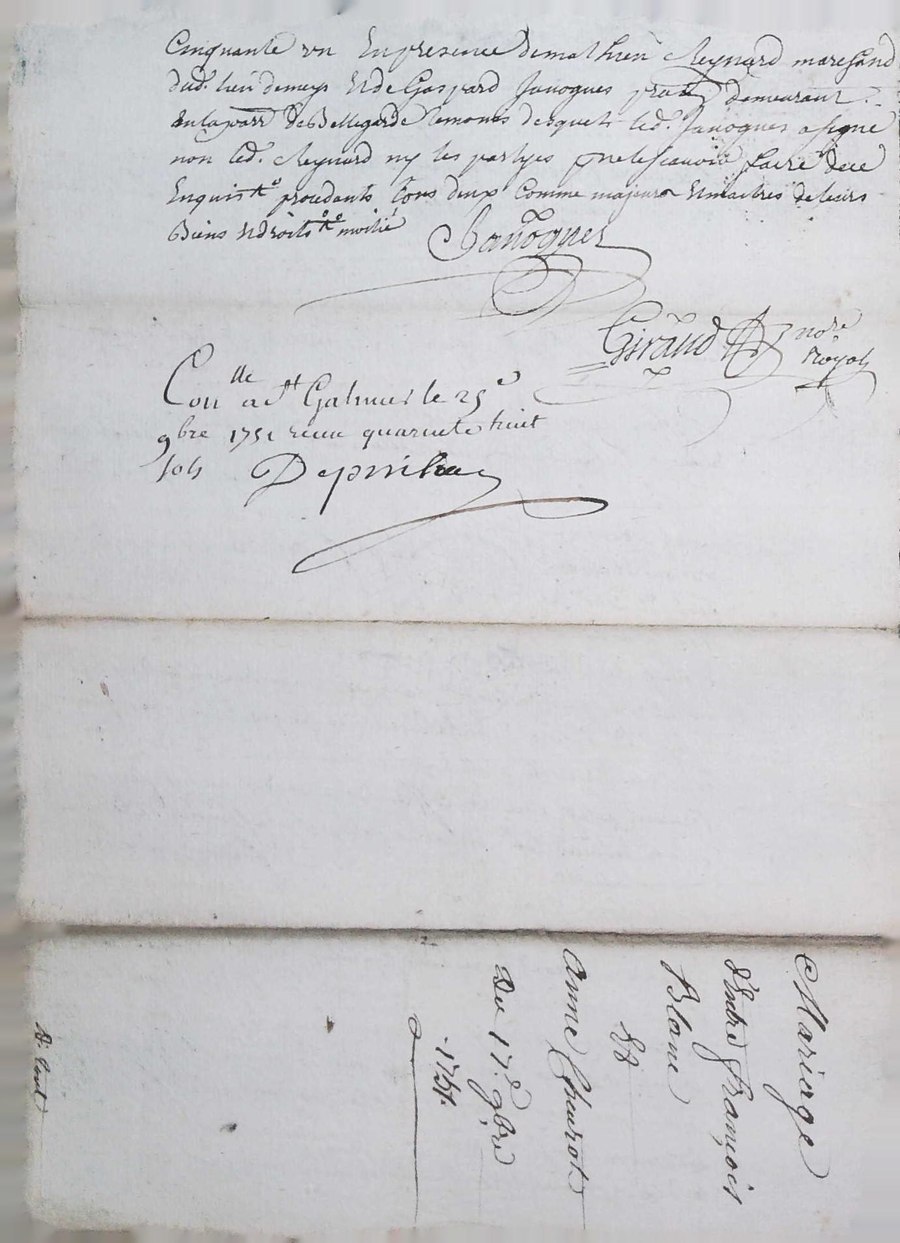 Cinquante vn En presence de mathieu Reynard marchand
dud. lieu de meys Et de Gaspard Janogues demeurant
En la parr. de Bellegarde temoins desquels led. Janogues a signé
non led. Reynard ny les partyes pour ne le scauoir faire de ce
Enquis procedants tous deux Comme majeurs Et maitres de leurs
Biens Et droits moitié
Janogues
Giraud nore
Royal
Conlle a St Galmier le 25e
9bre 1751 receu quarente huit
sols Depinhac
Mariage
d'Entre François
Blanc
Et
Anne Churot
Du 17e 9bre
1751.